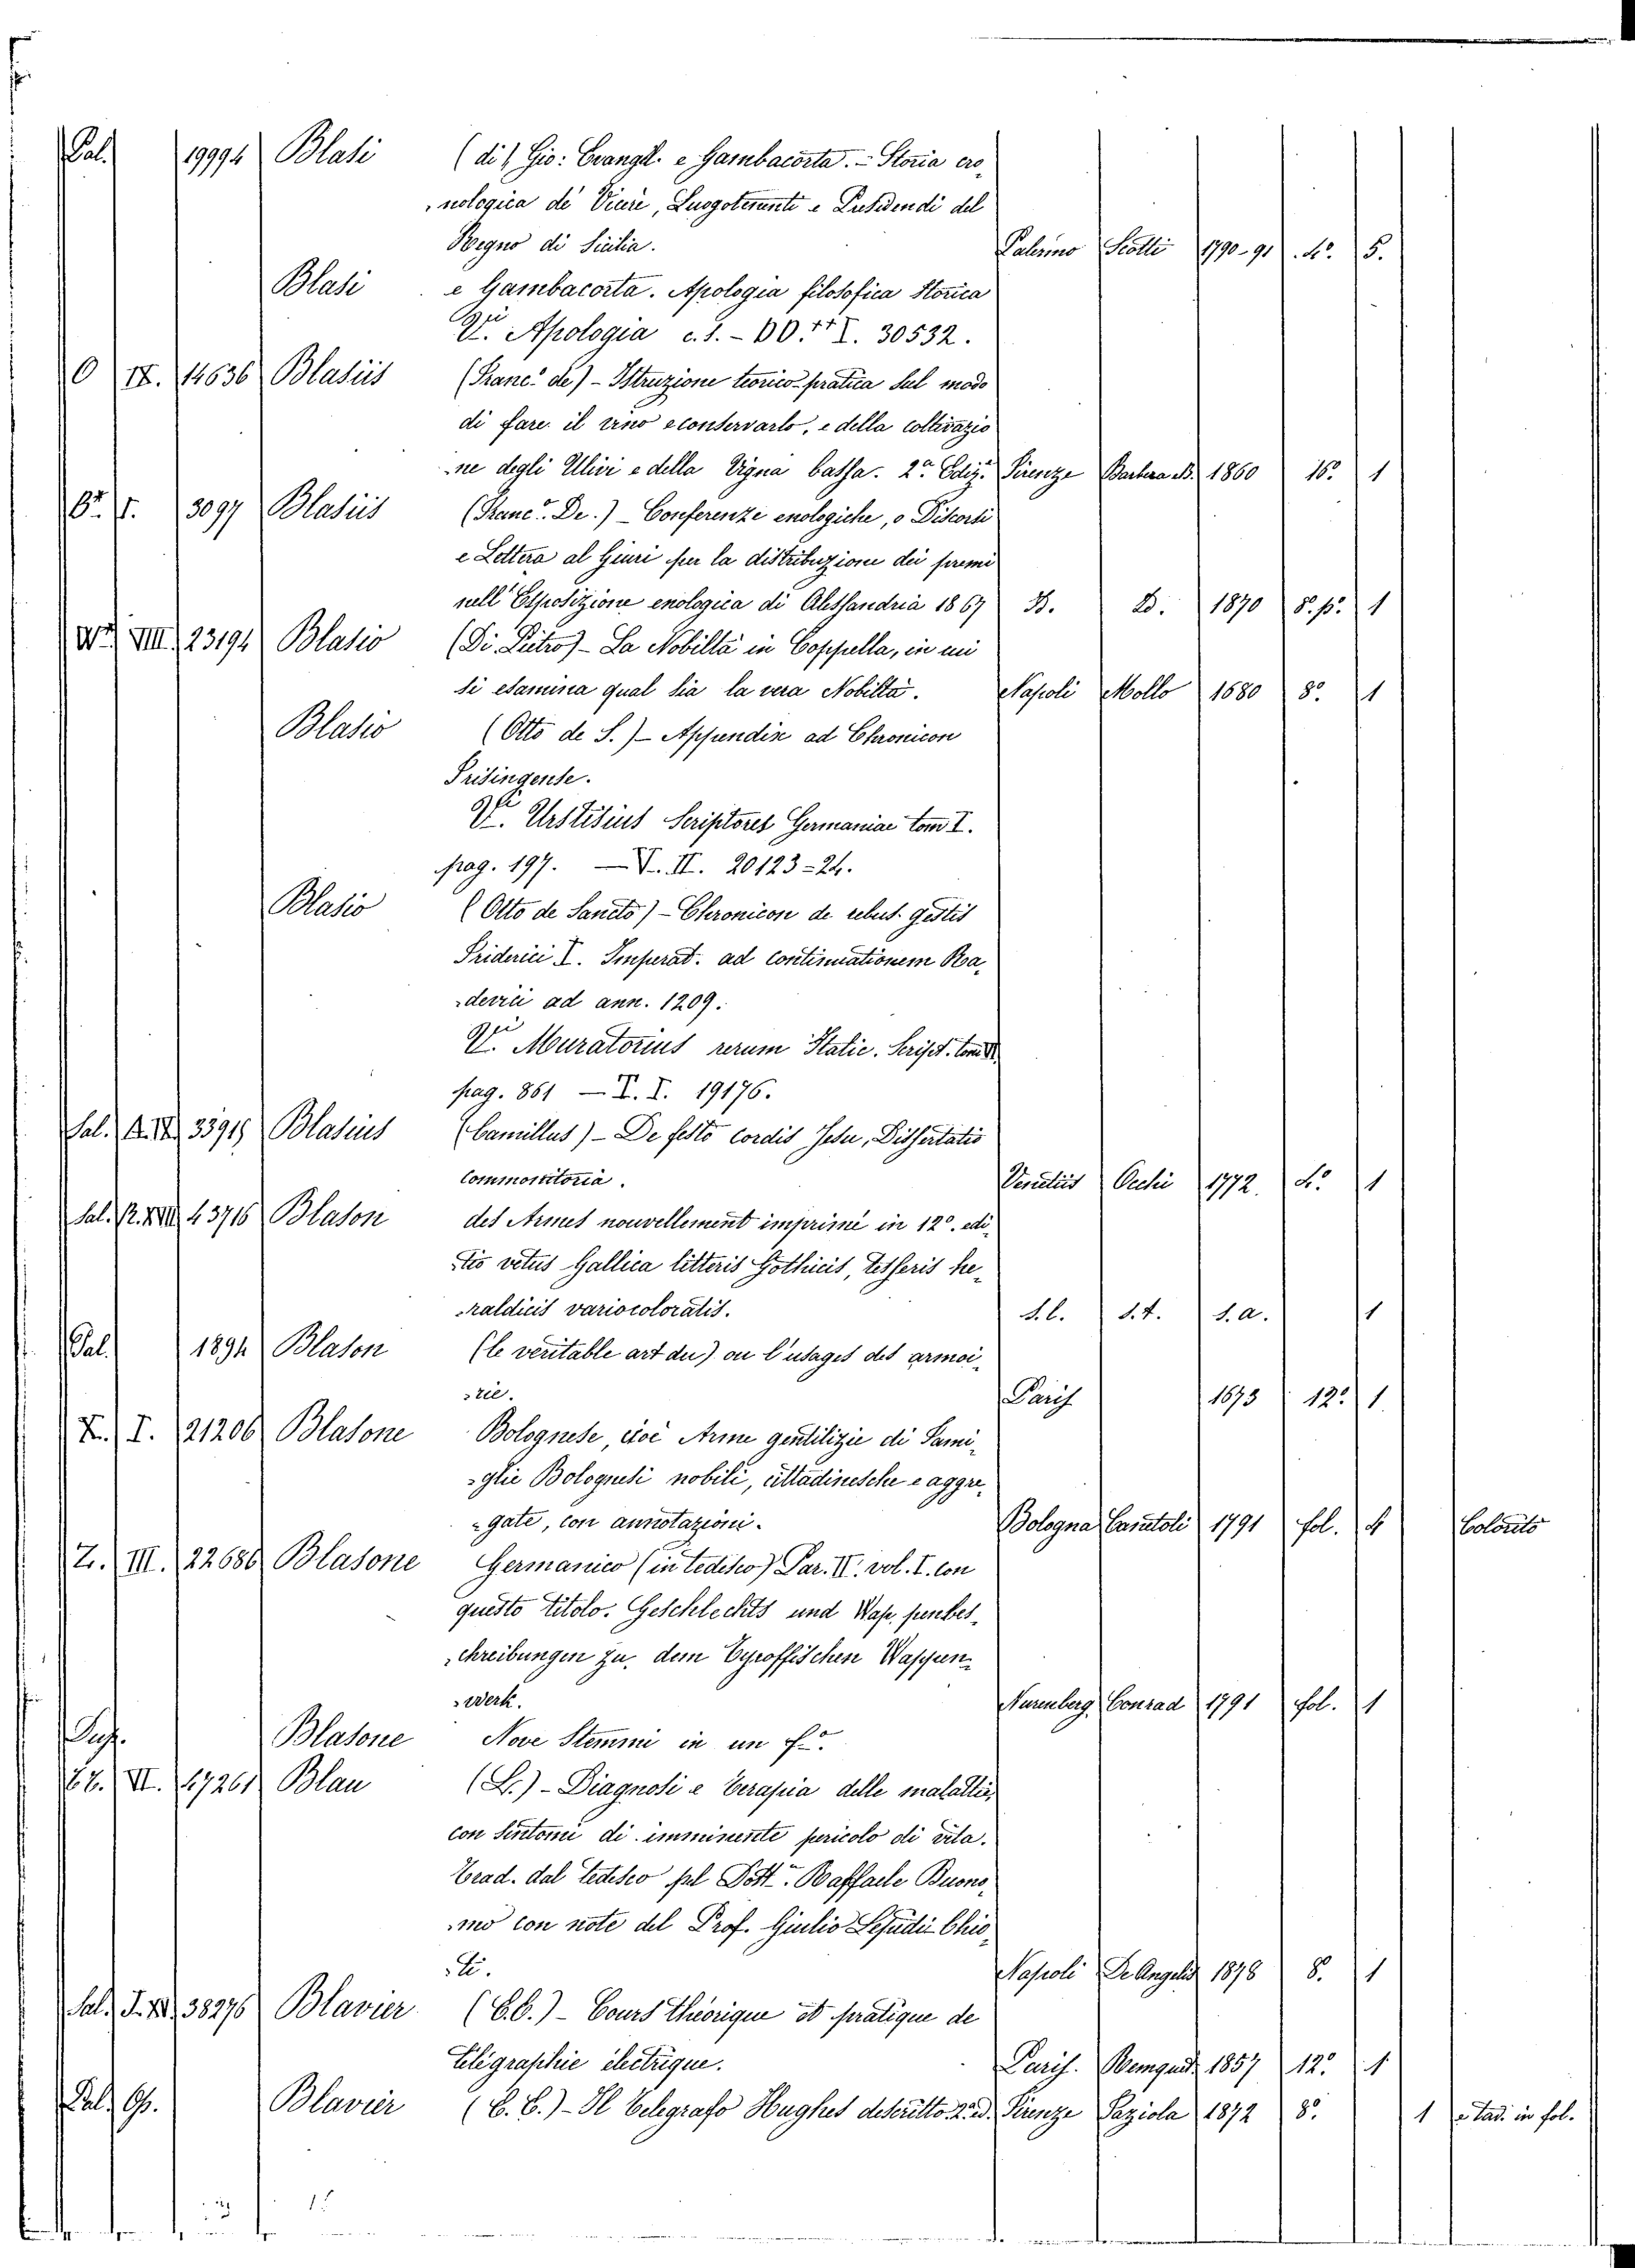 Pal. 19994 Blasi (di) Gio: Evangel. e Gambacorta. - Storia cro-
nologica de Vicire, Luogotenenti e Presidendi del
Regno di Sicilia. Palermo Scotti 1790-91. 4° 5.
Blasi e Gambacorta. Apologia filosofica Storica
Vi. Apologia c. s. - OO. ++ I. 30532.
O IX. 14636 Blasiis (Franc° de) - Istruzione teorico-pratica sul modo
di fare il vino e conservarlo, e della coltivazio
-ne degli Ulivi e della Vigna bassa. 2ª Ediz. Firenze Barbera B. 1860 16° 1
I. 3097 Blasiis (Franc° De.) - Conferenze enologiche, o Discorsi
e Lettera al Giuri per la distribuzione dei premi
nell'Esposizione enologica di Alessandria 1867 D. D. 1870 8. p. 1
VIII. 23194 Blasio (Di Pietro) - La Nobiltà in Coppella, in cui
si esamina qual sia la vera Nobiltà. Napoli Mollo 1680 8° 1
Blasio (Otto de S.) - Appendix ad Chronicon
Frisingense.
Vi. Urstisius Scriptores Germaniae tom I.
pag. 197. - V. II. 20123-24.
Blasio (Otto de Sancto) - Chronicon de rebus gestis
Friderici I. Imperat. ad continuationem Ra-
-devici ad ann. 1209.
Vi. Muratorius rerum Italic. Script. tom VI
pag. 861 - T. I. 19176.
Sal. 33919 Blasius (Camillus) - De festo cordis Jesu, Dissertatio
Commonitoria. Venetiis Occhi 1772. 4° 1
Sal. R. XVII 43716 Blason des Armes nouvellement imprimé in 12°. edi-
tio vetus Gallica litteris Gothicis, tesseris he-
raldicis variocoloratis. S. l. s. t. s. a. 1
Pal. 1894 Blason (le veritable art du) ou l'usages des armoi-
-rie. Paris 1673 12° 1
X. I. 21206 Blasone Bolognese, cioè Arme gentilizie di Fami-
-glie Bolognesi nobili, cittadinesche e aggre-
-gate, con annotazioni. Bologna Canetoli 1791 fol. 4 Colorito
Z. III. 22686 Blasone Germanico (in tedesco) Par. II. vol. I. con
questo titolo. Geschlechts und Wap. penbes-
chreibungen zu. dem Tyroffischen Wappen-
-werk. Nurenberg Conrad 1791 fol. 1
Blasone Nove Stemmi in un f°.
VI. 47261 Blau (L.) - Diagnosi e Terapia delle malattie,
con sintomi di imminente pericolo di vita.
Trad. dal tedesco pel Dott. Raffaele Buono-
-mo con note del Prof. Giulio Lepidi-Chio-
-ti. Napoli De Angelis 1878 8. 1
Sal. J. XI. 38276 Blavier (E.E.) - Cours théorique et pratique de
Télégraphie électrique. Paris. 1857 12° 1
Pal. G. Blavier (E. E.) - Il Telegrafo Hughes descritto Firenze Paziola 1872 8° 1 e tad. in fol.